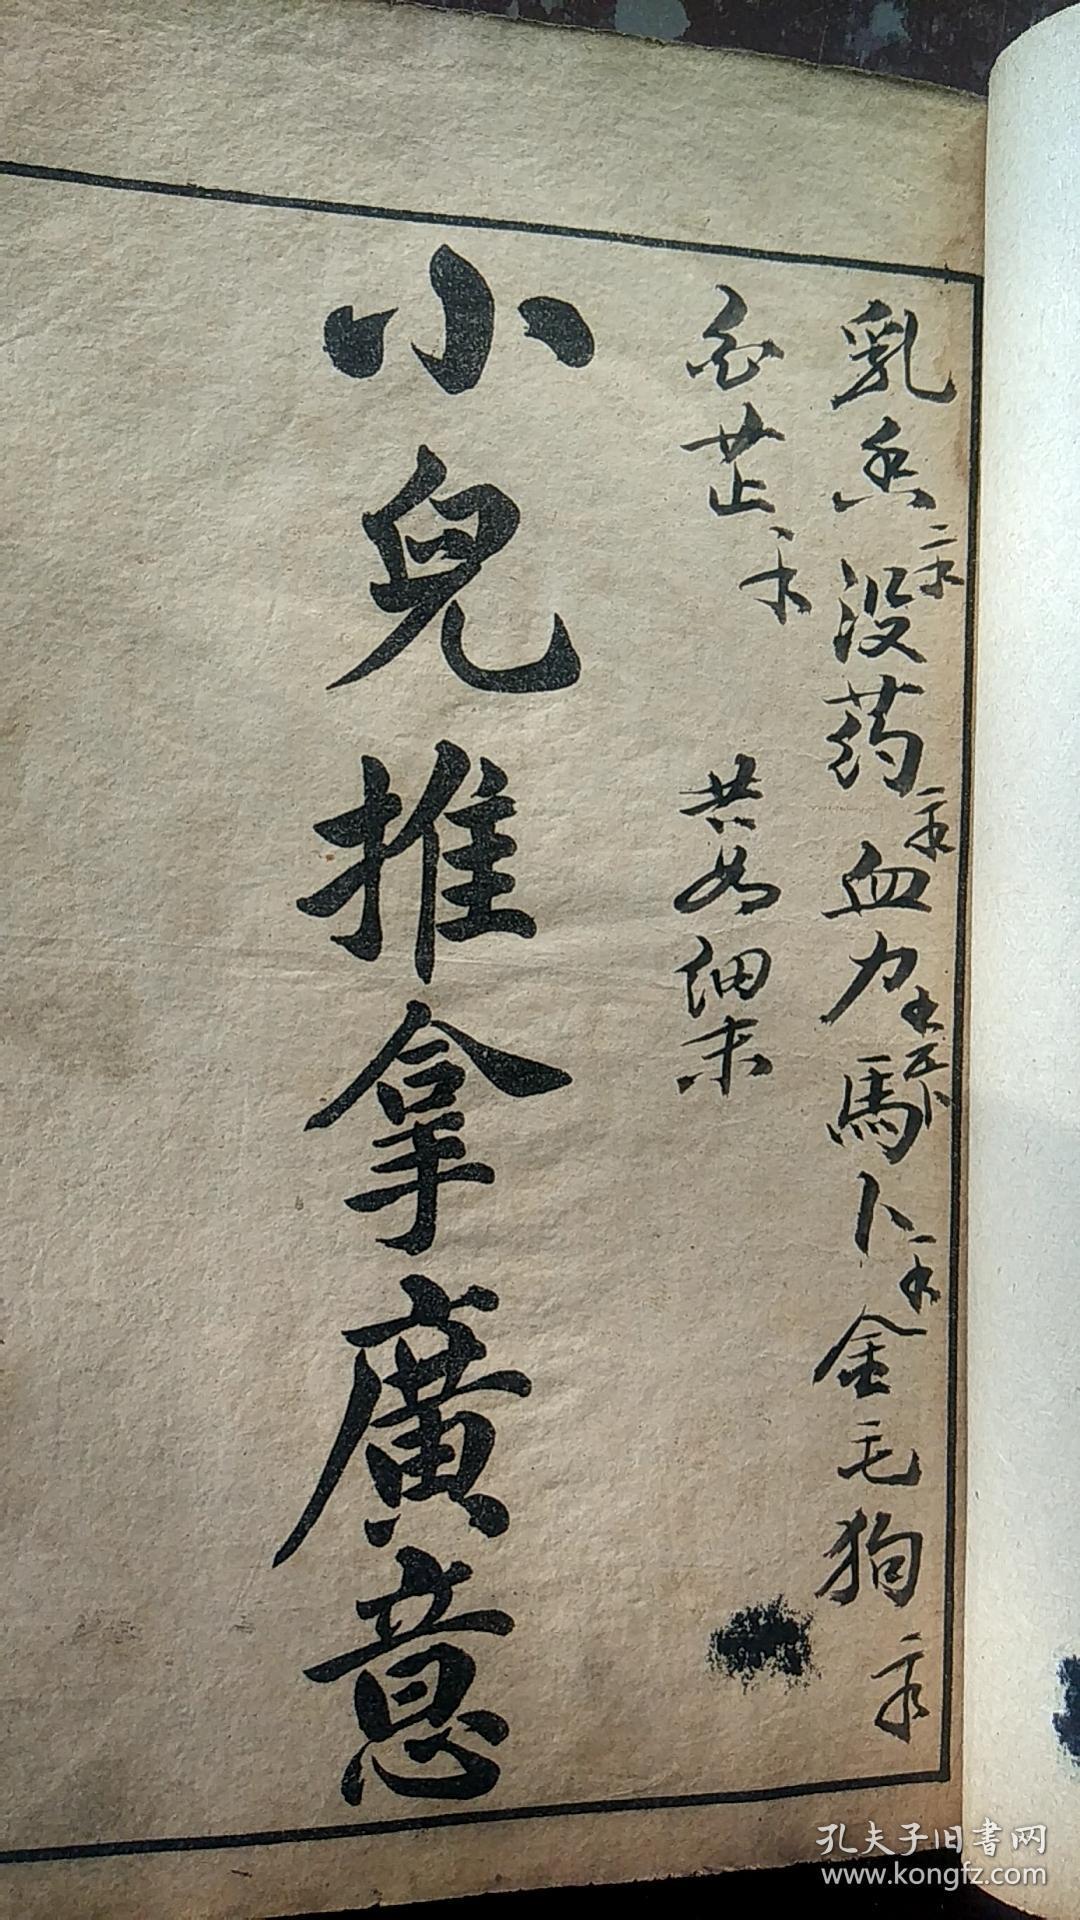 乳香二钱没药二钱血力钱五分馬卜二钱金毛狗二钱
白芷一钱 共为细末
小兒推拿廣意
孔夫子旧書网
www.kongfz.com